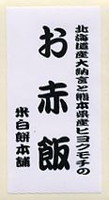 北海道産大納言と熊本県産ヒヨクモチの
お赤飯
米白餅本舗